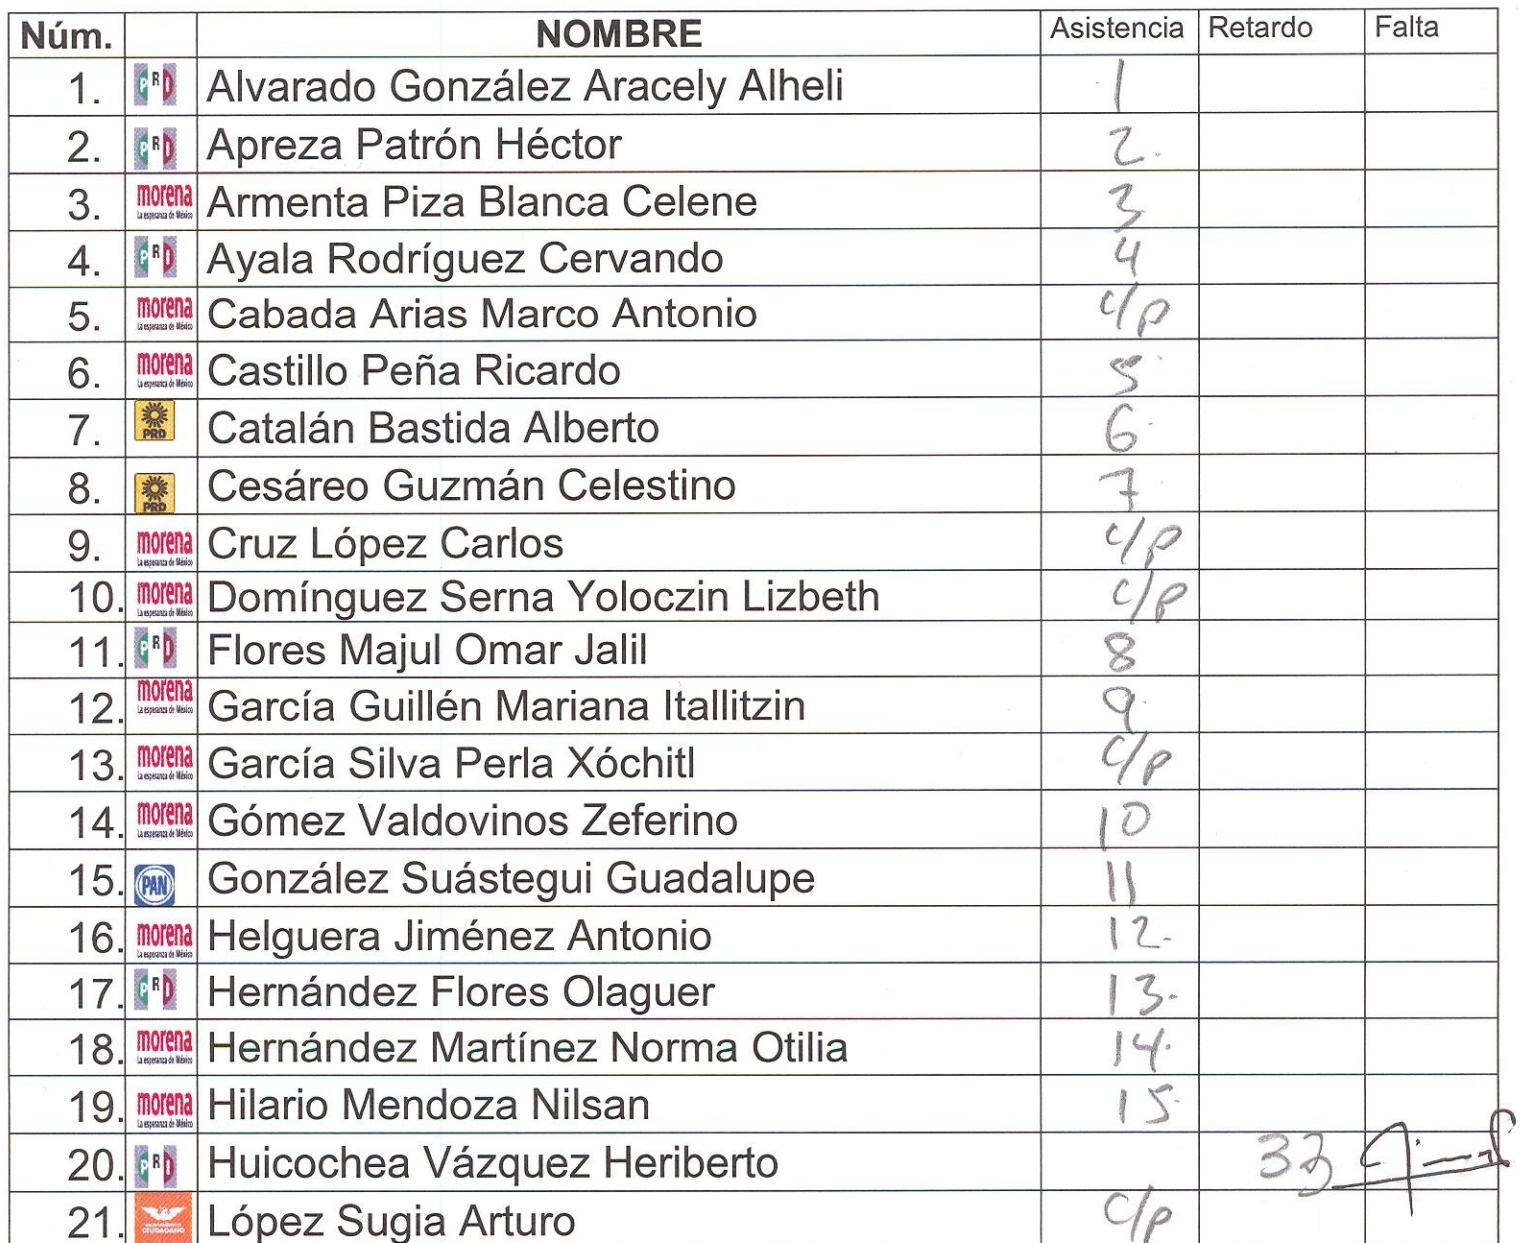 Núm. NOMBRE Asistencia Retardo Falta
1. PRI Alvarado González Aracely Alheli 1
2. PRI Apreza Patrón Héctor 2.
3. morena La esperanza de México Armenta Piza Blanca Celene 3
4. PRI Ayala Rodríguez Cervando 4
5. morena La esperanza de México Cabada Arias Marco Antonio c/p
6. morena La esperanza de México Castillo Peña Ricardo 5
7. PRD Catalán Bastida Alberto 6
8. PRD Cesáreo Guzmán Celestino 7
9. morena La esperanza de México Cruz López Carlos c/p
10. morena La esperanza de México Domínguez Serna Yoloczin Lizbeth c/p
11. PRI Flores Majul Omar Jalil 8
12. morena La esperanza de México García Guillén Mariana Itallitzin 9
13. morena La esperanza de México García Silva Perla Xóchitl c/p
14. morena La esperanza de México Gómez Valdovinos Zeferino 10
15. PAN González Suástegui Guadalupe 11
16. morena La esperanza de México Helguera Jiménez Antonio 12.
17. PRI Hernández Flores Olaguer 13.
18. morena La esperanza de México Hernández Martínez Norma Otilia 14.
19. morena La esperanza de México Hilario Mendoza Nilsan 15.
20. PRI Huicochea Vázquez Heriberto 33
21. CIUDADANO López Sugia Arturo c/p